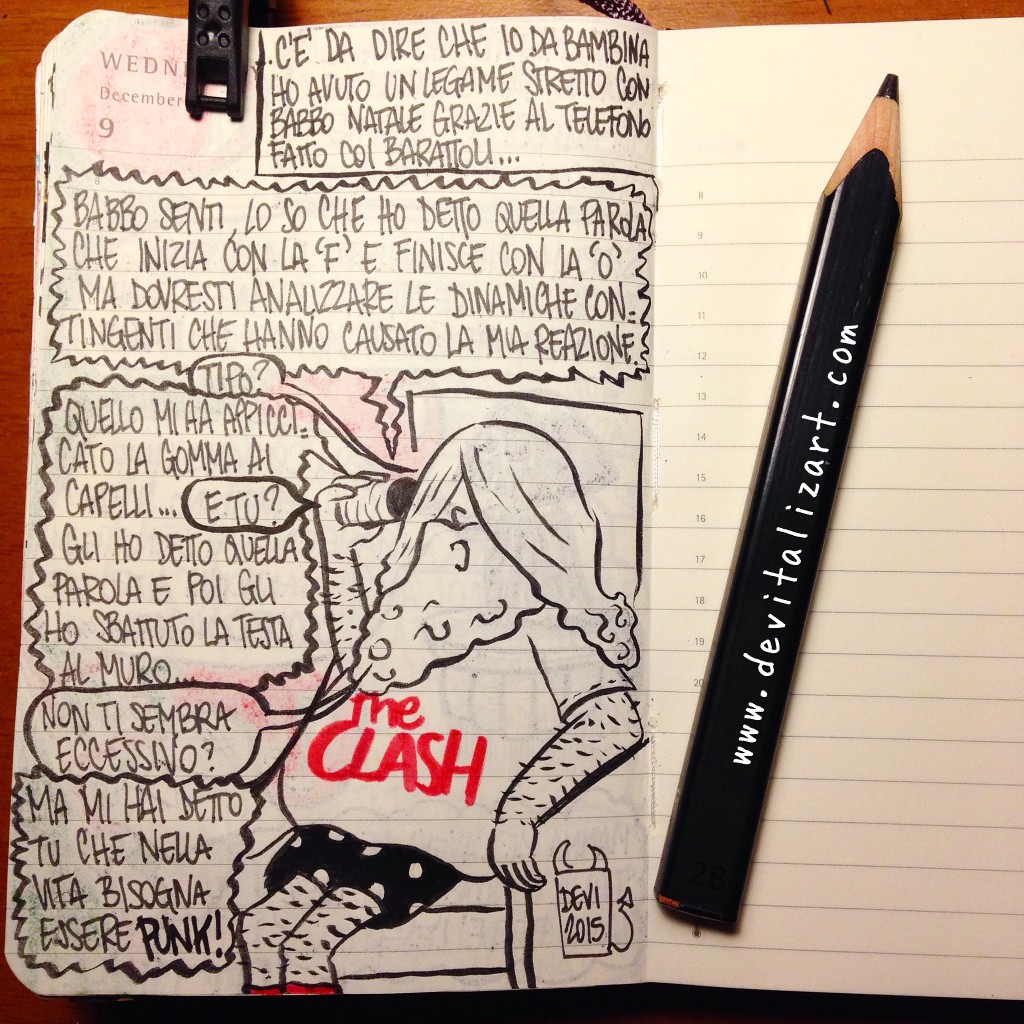 WEDN
December
9
C'E' DA DIRE CHE IO DA BAMBINA
HO AVUTO UN LEGAME STRETTO CON
BABBO NATALE GRAZIE AL TELEFONO
FATTO COI BARATTOLI...
BABBO SENTI, LO SO CHE HO DETTO QUELLA PAROLA
CHE INIZIA CON LA 'F' E FINISCE CON LA 'O'
MA DOVRESTI ANALIZZARE LE DINAMICHE CON=
TINGENTI CHE HANNO CAUSATO LA MIA REAZIONE.
TIPO?
QUELLO MI HA APPICCI=
CATO LA GOMMA AI
CAPELLI...
E TU?
GLI HO DETTO QUELLA
PAROLA E POI GLI
HO SBATTUTO LA TESTA
AL MURO...
NON TI SEMBRA
ECCESSIVO?
MA MI HAI DETTO
TU CHE NELLA
VITA BISOGNA
ESSERE PUNK!
The
CLASH
DEVI
2015
8
9
10
11
12
13
14
15
16
17
18
19
20
www.devitalizart.com
2B